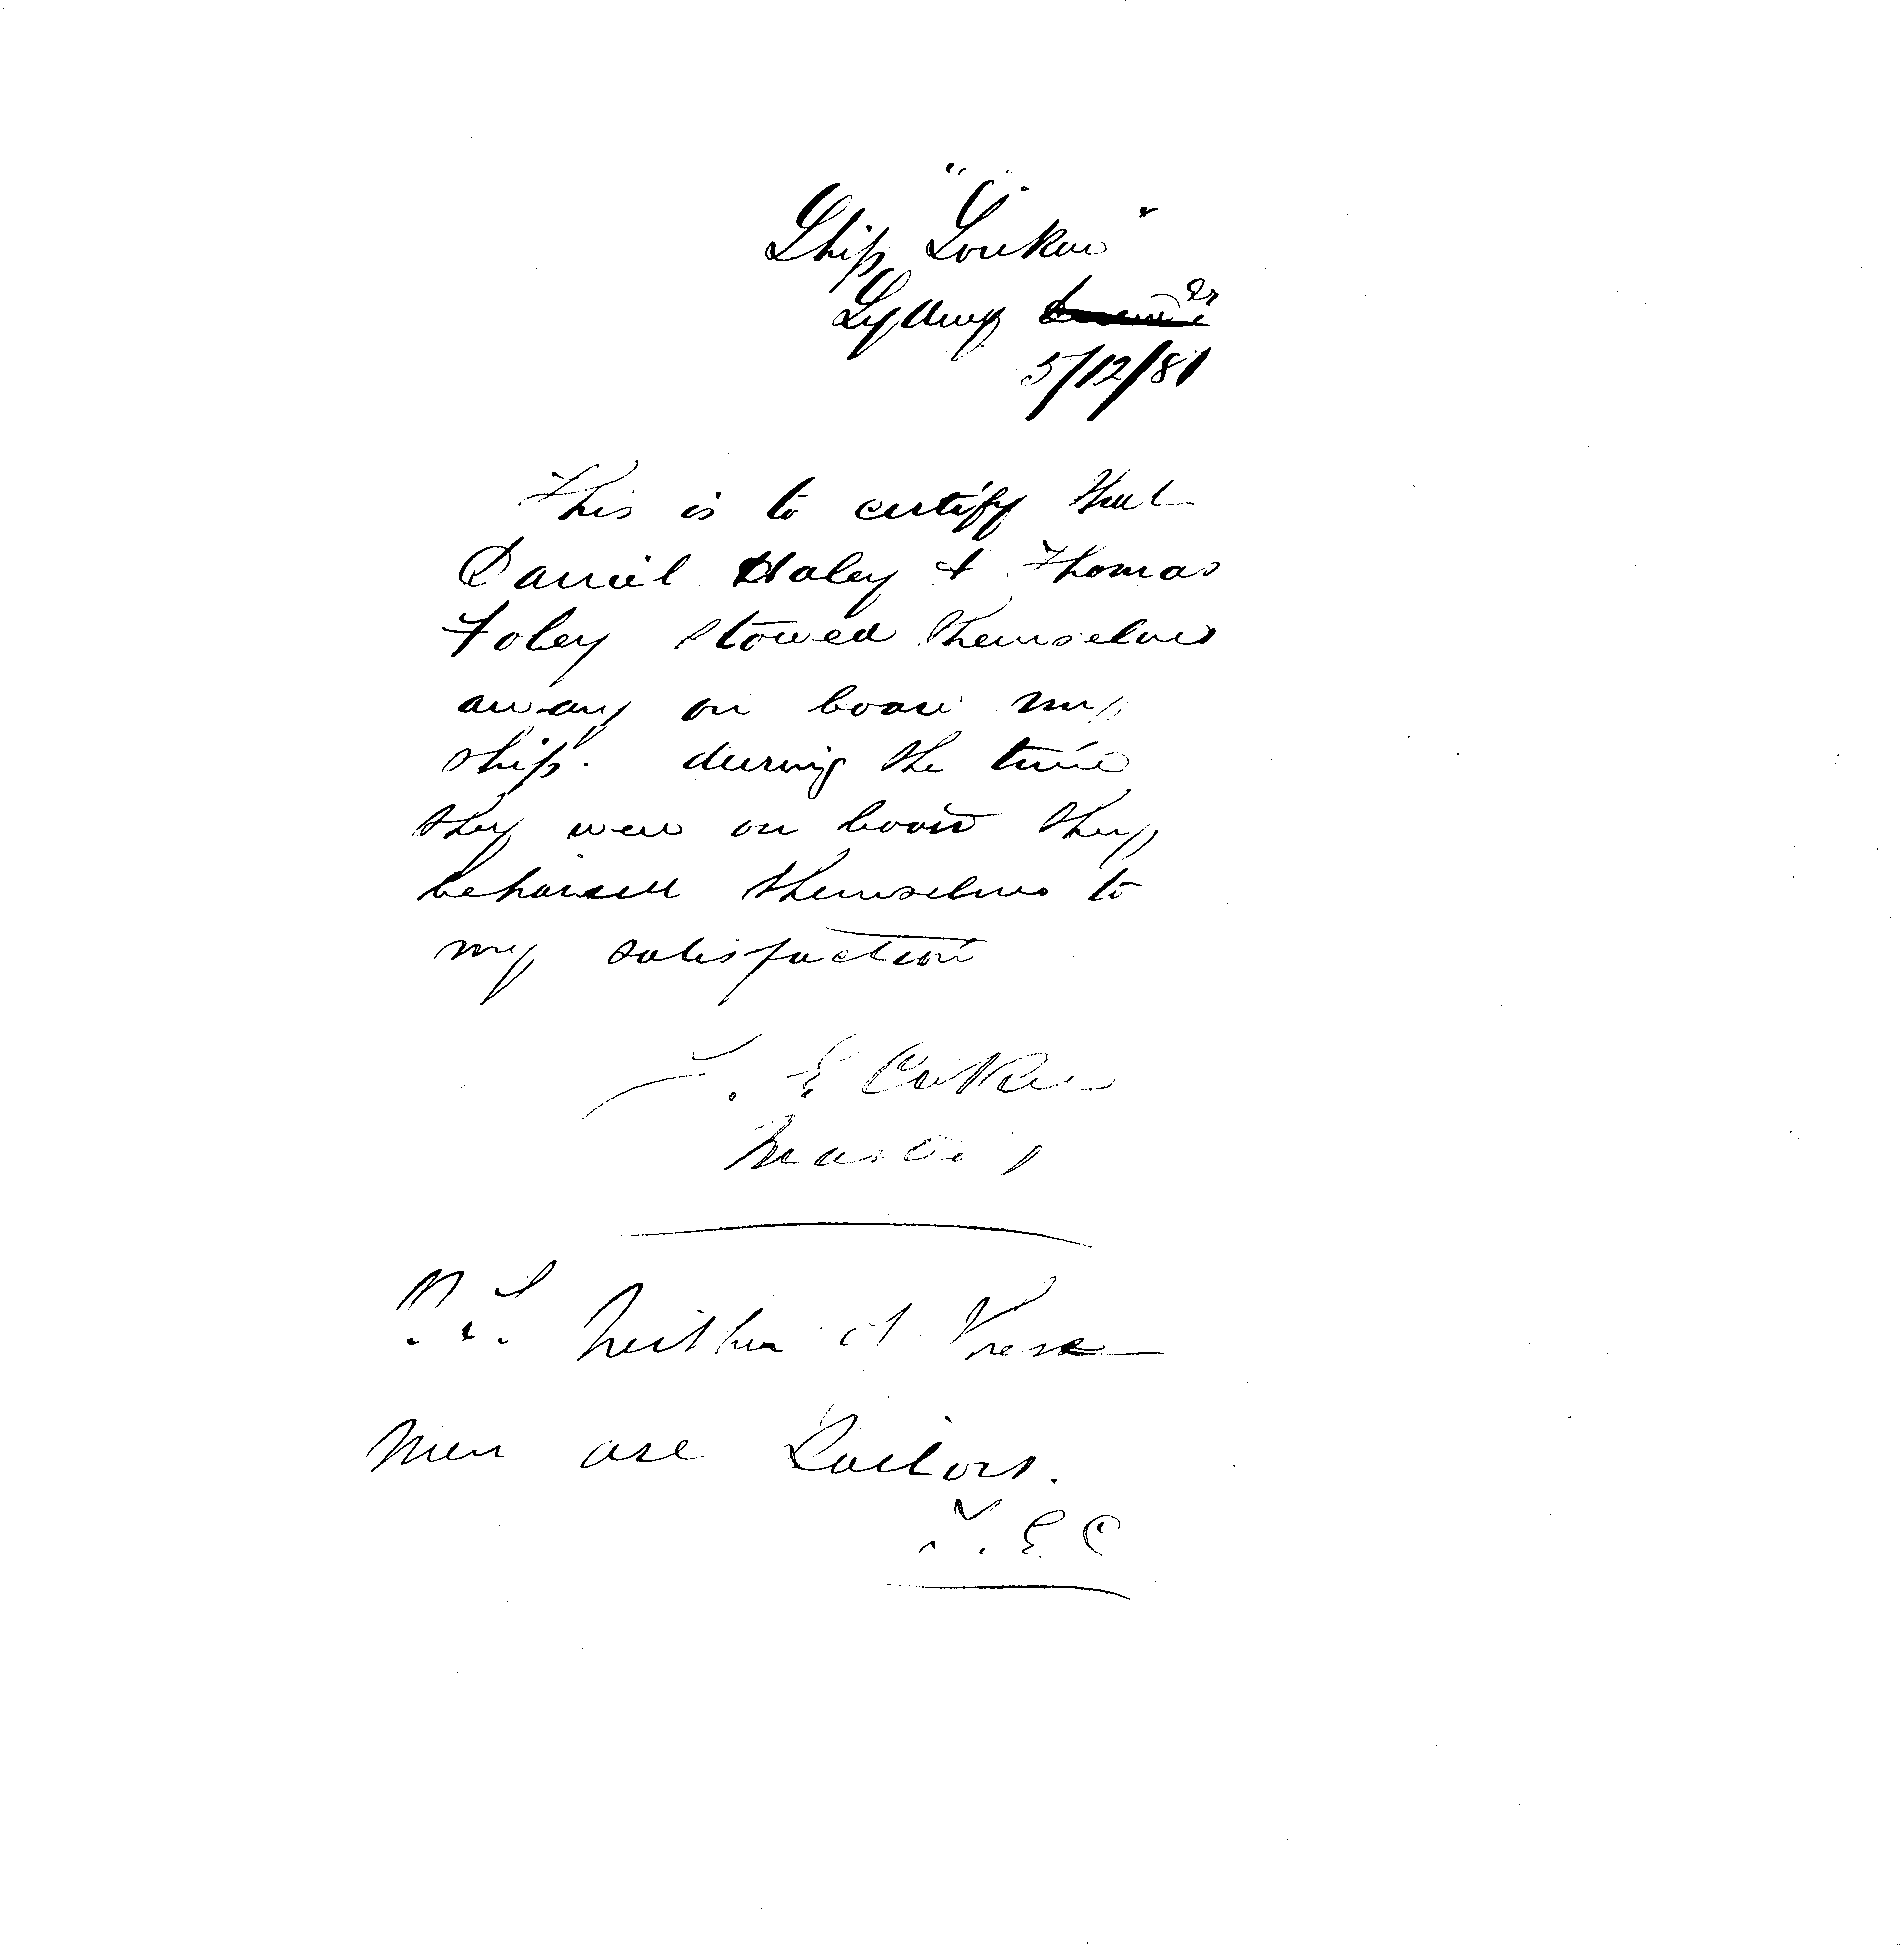 Ship "Loukow"
Sydney
5/12/81
This is to certify that
Daniel Haley & Thomas
Foley stowed themselves
away on board my
ship. during the time
they were on board they
behaved themselves to
my satisfaction
T. E
Master
P.S. Neither of these
men are Sailors.
T. E C